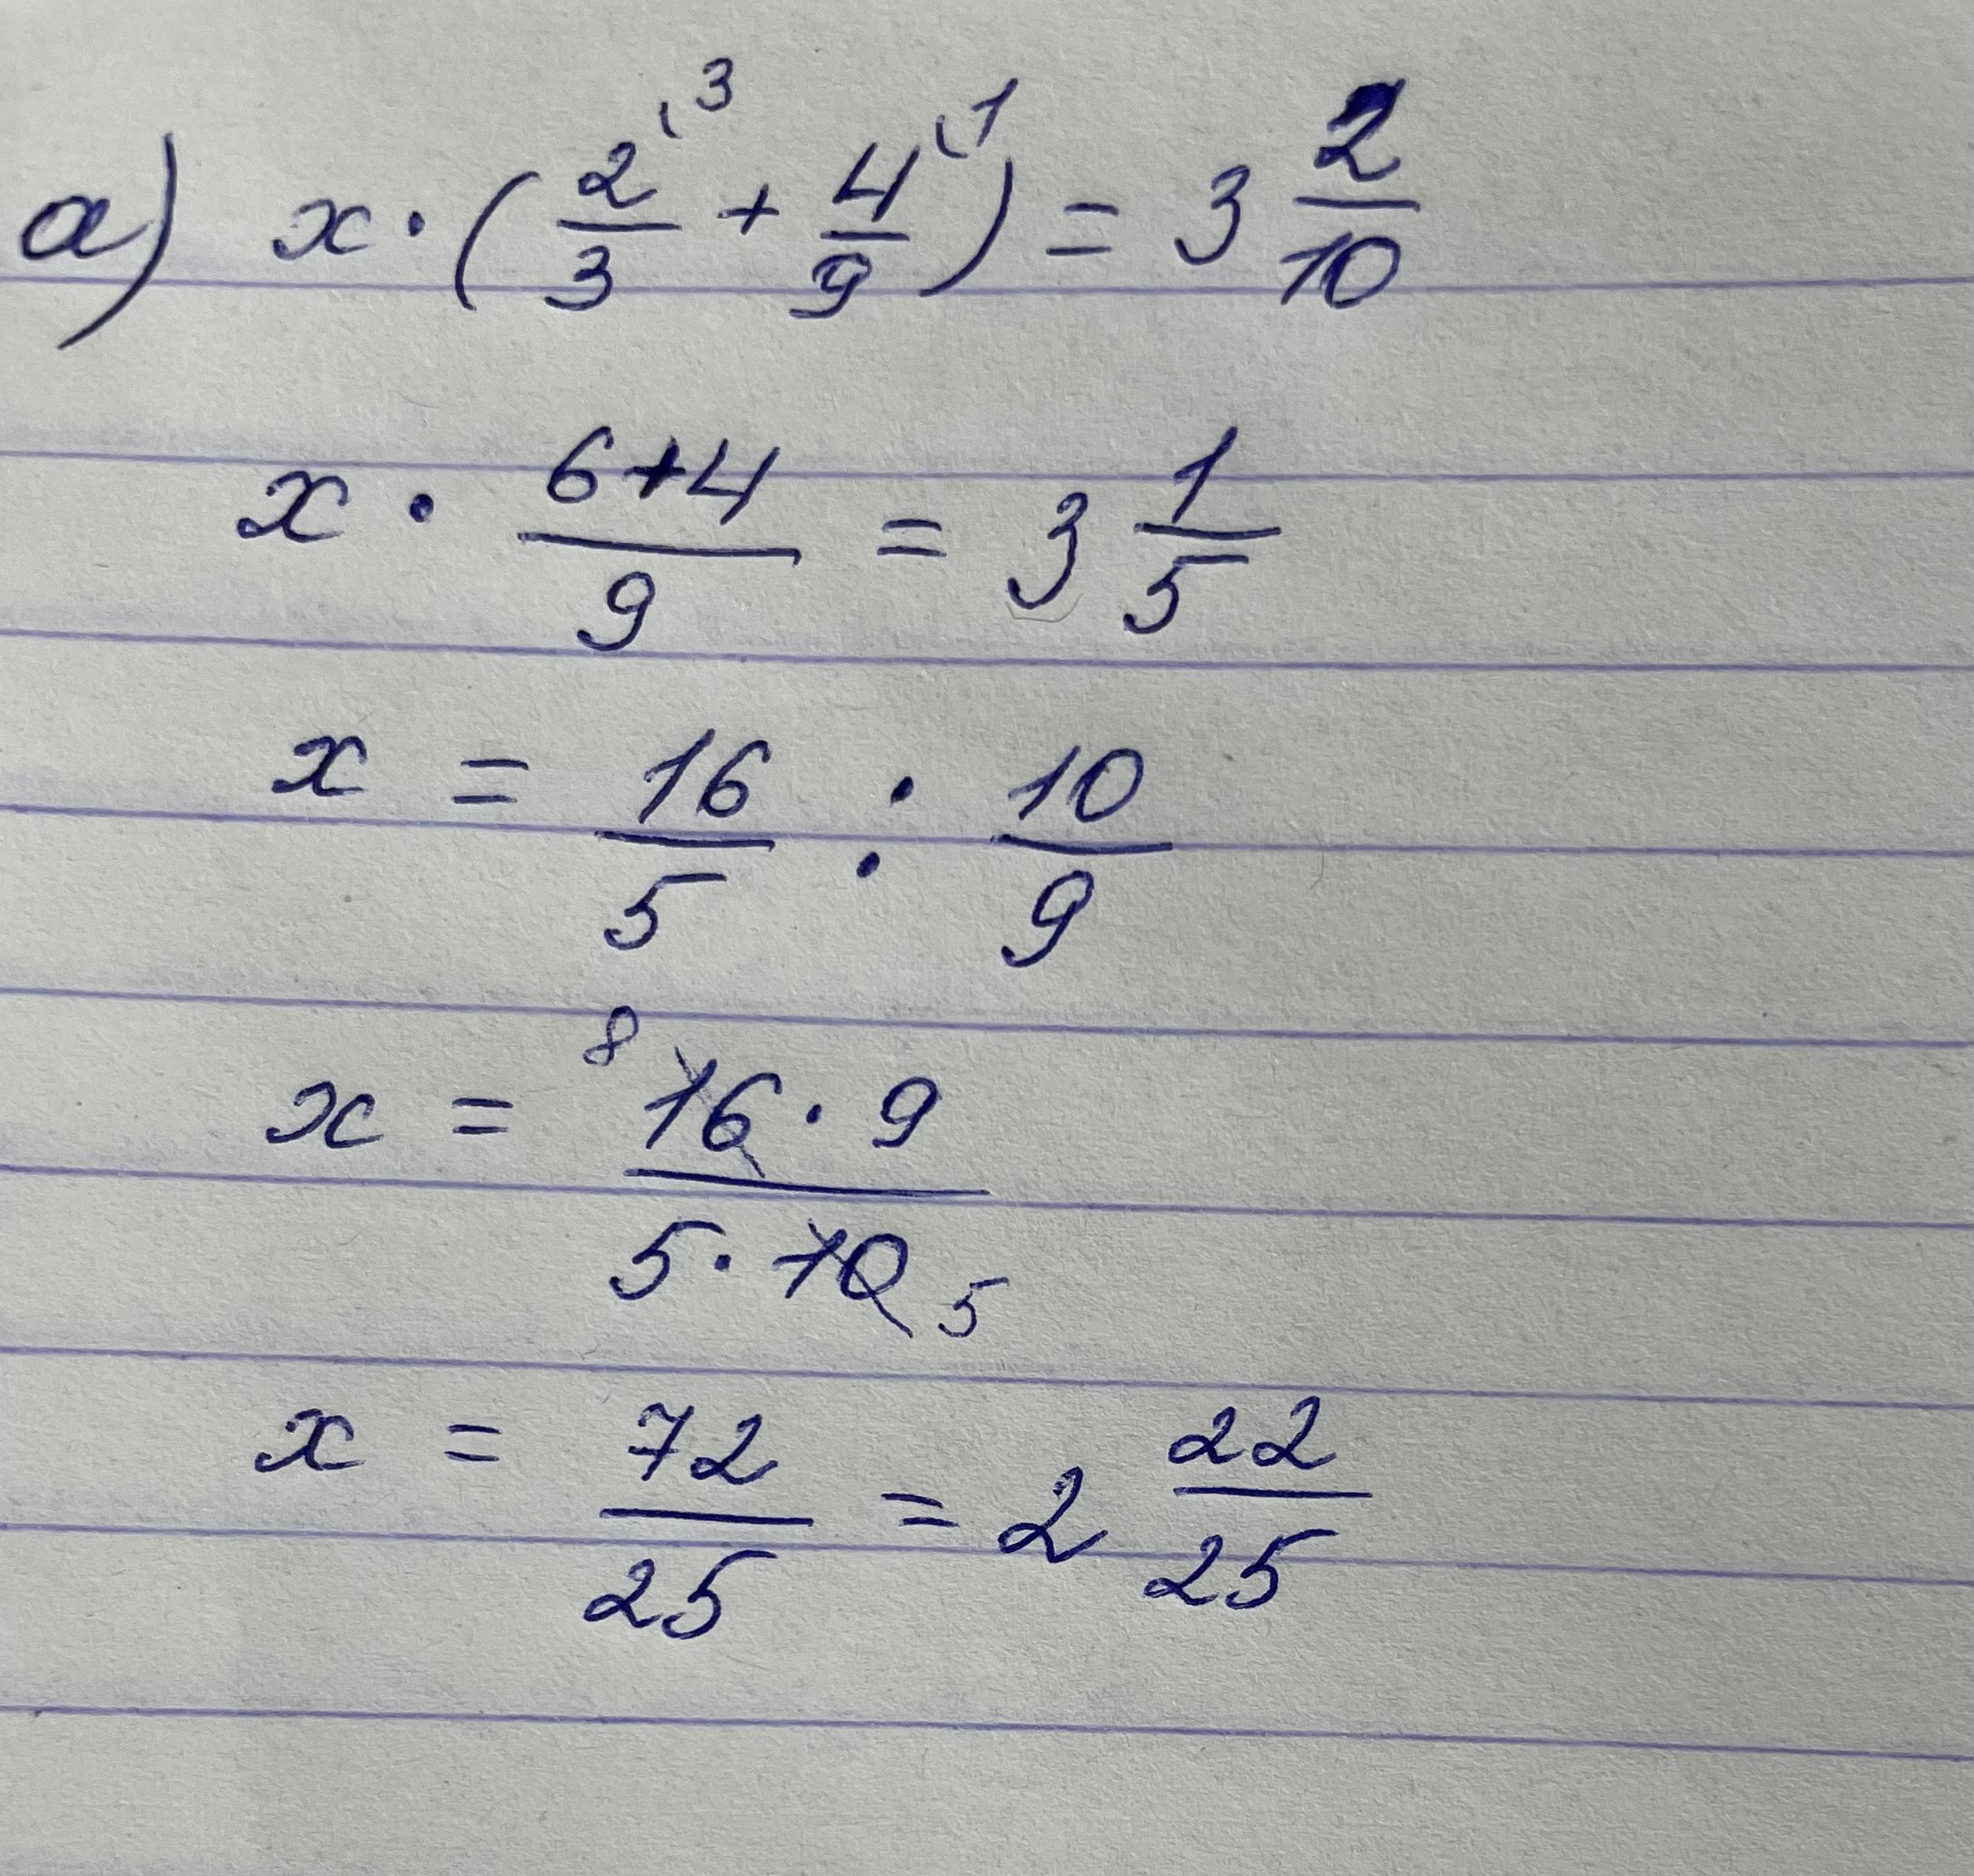 a) x · (2/3 ⁽³ + 4/9 ⁽¹) = 3 2/10
x · (6+4)/9 = 3 1/5
x = 16/5 : 10/9
x = ⁸16 · 9 / 5 · 10 ₅
x = 72/25 = 2 22/25